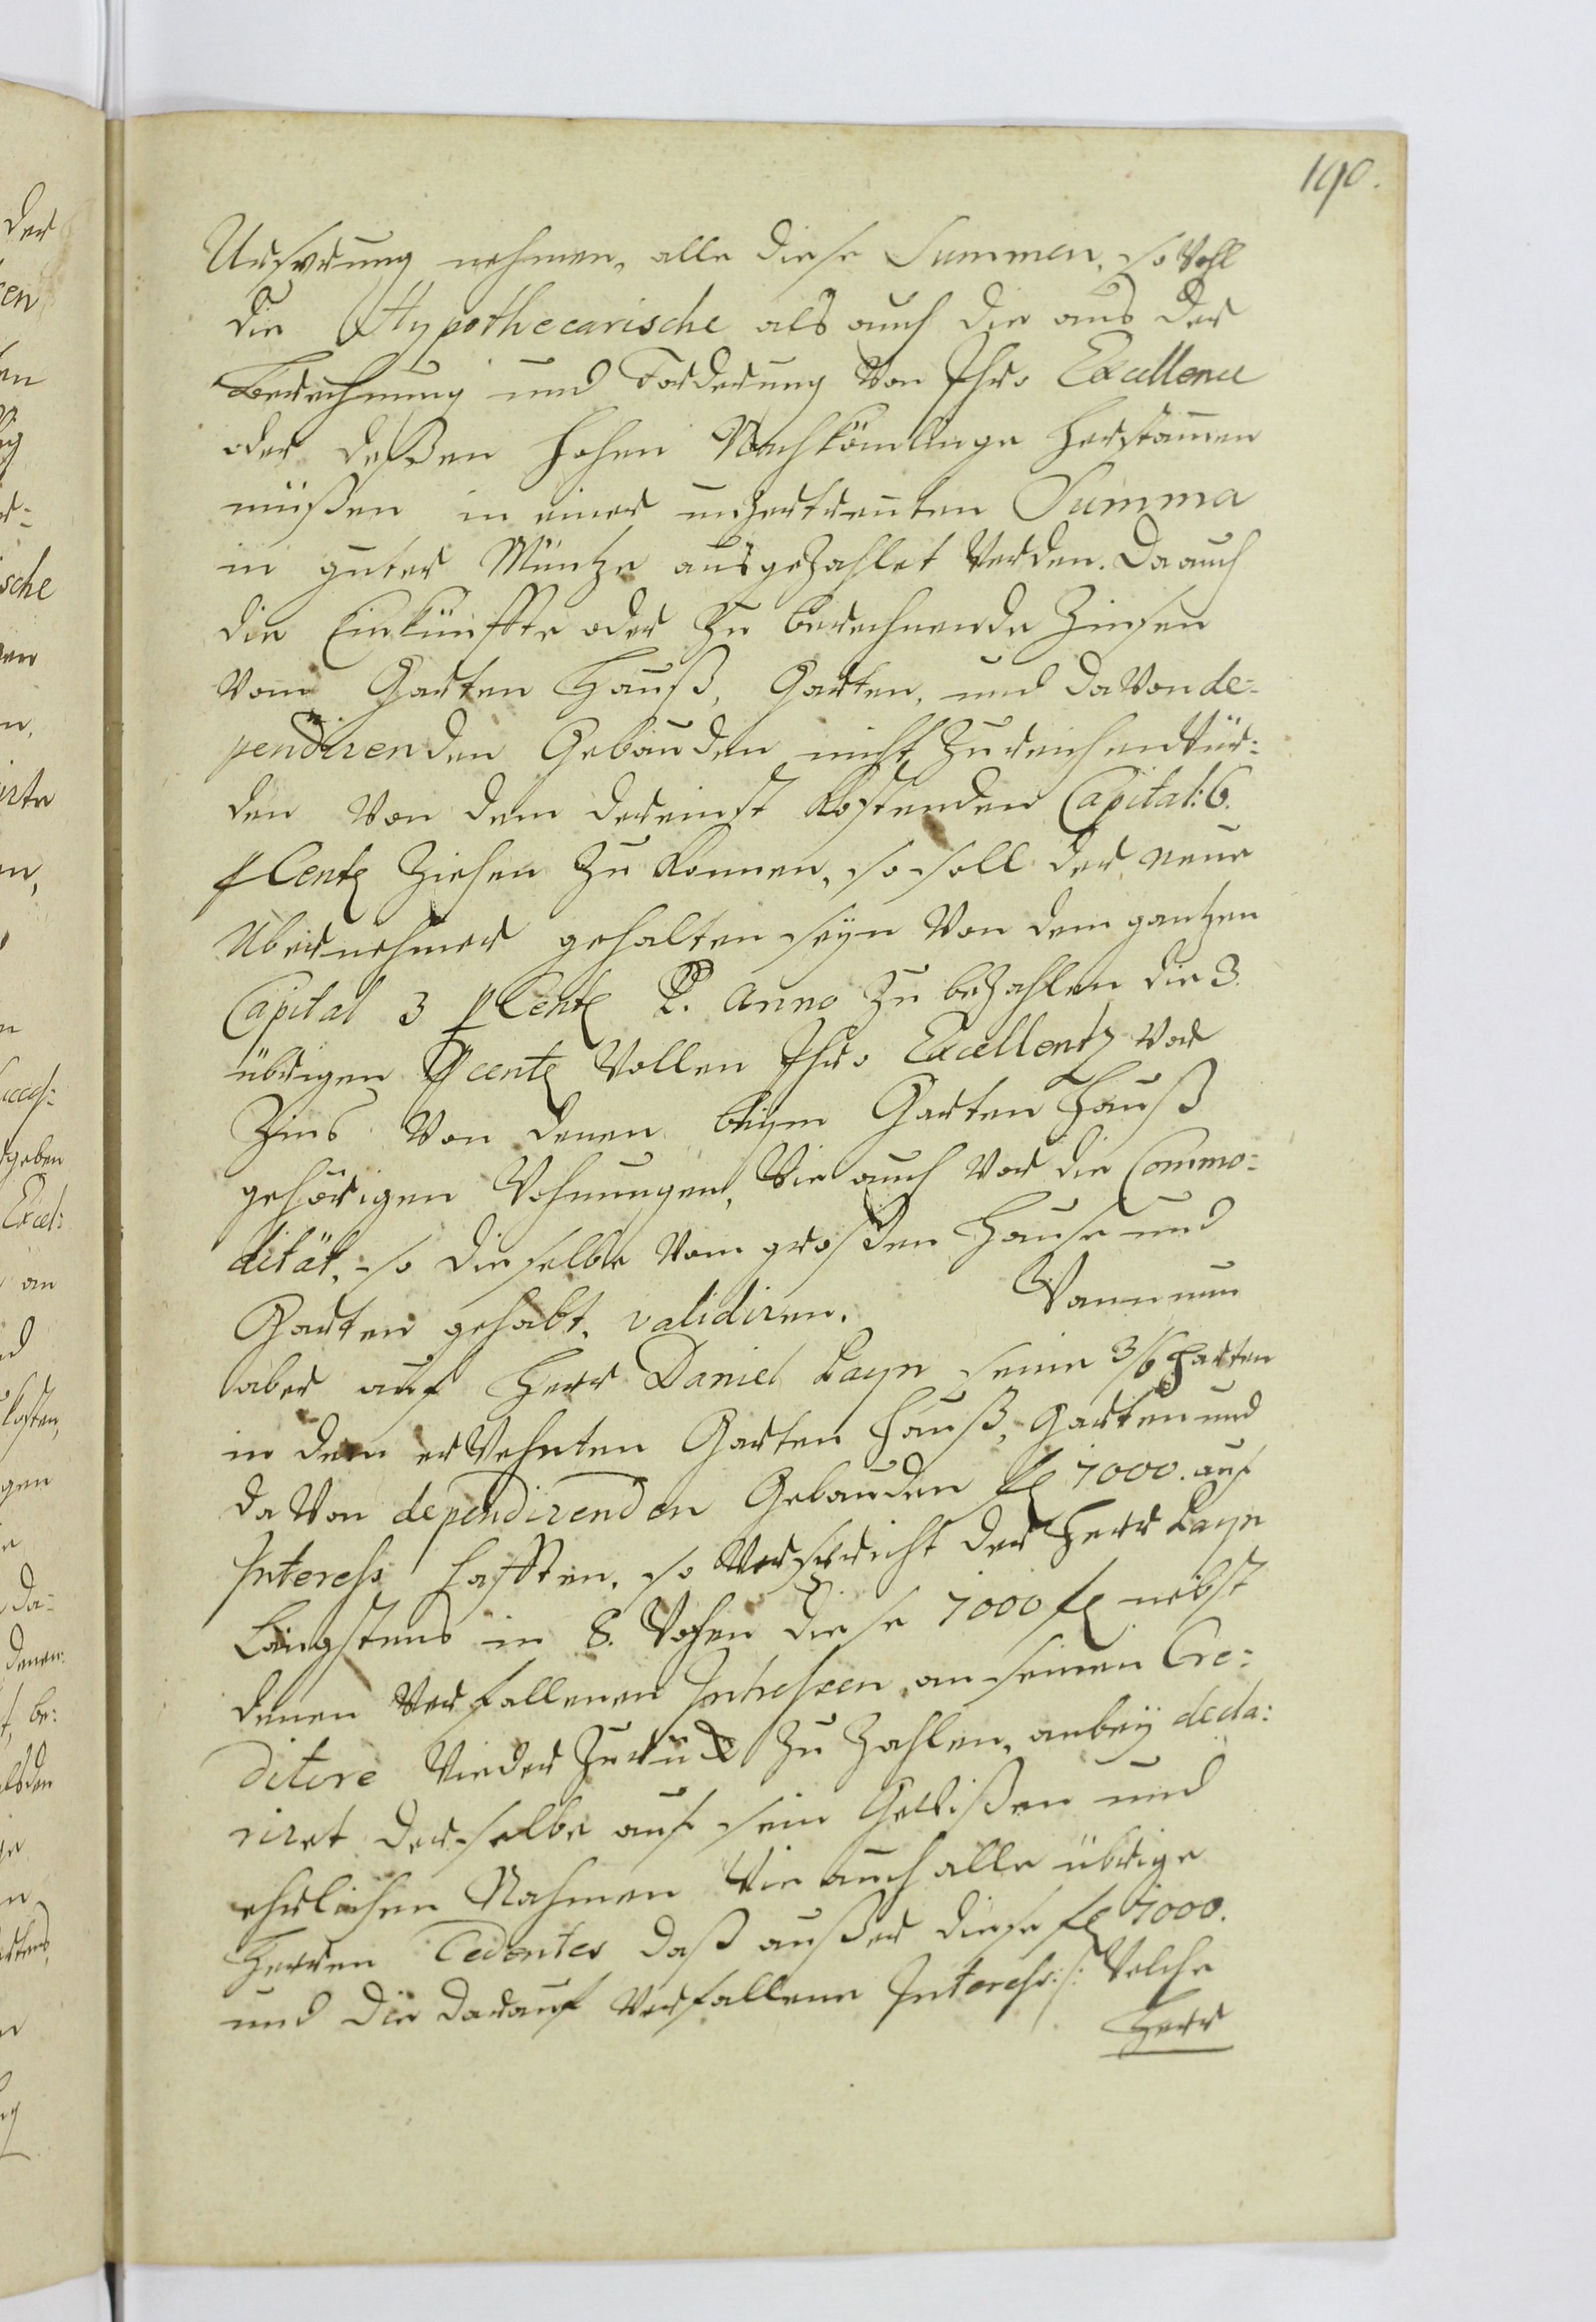 190.
Ursprung nehmen, alle diese Summen, so wohl
die Hypothecarische als auch die aus der
Berechnung und Forderung von Ihro Excellence
oder deßen hohen Nachkömlinge herstam̄en
müßen in einer unzertreñten Summa
in guter Müntze ausgezahlet werden. Da auch
die Einkünffte oder zu berechnende Zinsen
vom Garten Hauß, Garten, und davon de=
pendirenden Gebäuden nicht zureichen wür=
den von dem dereinst kostenden Capital: 6.
p Cente ziehen zu können, so soll der neue
Ubernehmer gehalten seyn von dem gantzen
Capital 3 p Cente P. anno zu bezahlen die 3.
übrigen p cente wollen Ihro Excellentz vor
Zins von denen beym Garten Hauß
gehörigen Wohnungen, wie auch vor die Commo=
dität, so dieselbe vom großen Hause und
Garten gehabt, validiren. Wann nun
aber auf Herr Daniel Layn seine 3/6 Parten
in dem erwehnten Garten Hauß, Garten und
davon dependirenden Gebäuden fl 7000. auf
Interesse hafften, so verspricht der Herr Layn
Längstens in 8. Wochen diese 7000 fl nebst
denen verfallenen Interessen an seinen Cre=
ditore wieder zurük zu zahlen, anbey decla:
riret derselbe auf sein Gewißen und
ehrlichen Nahmen wie auch alle übrige
Herren Cedentes daß außer diese fl 7000.
und die darauf verfallene Interesse /: welche
Herr